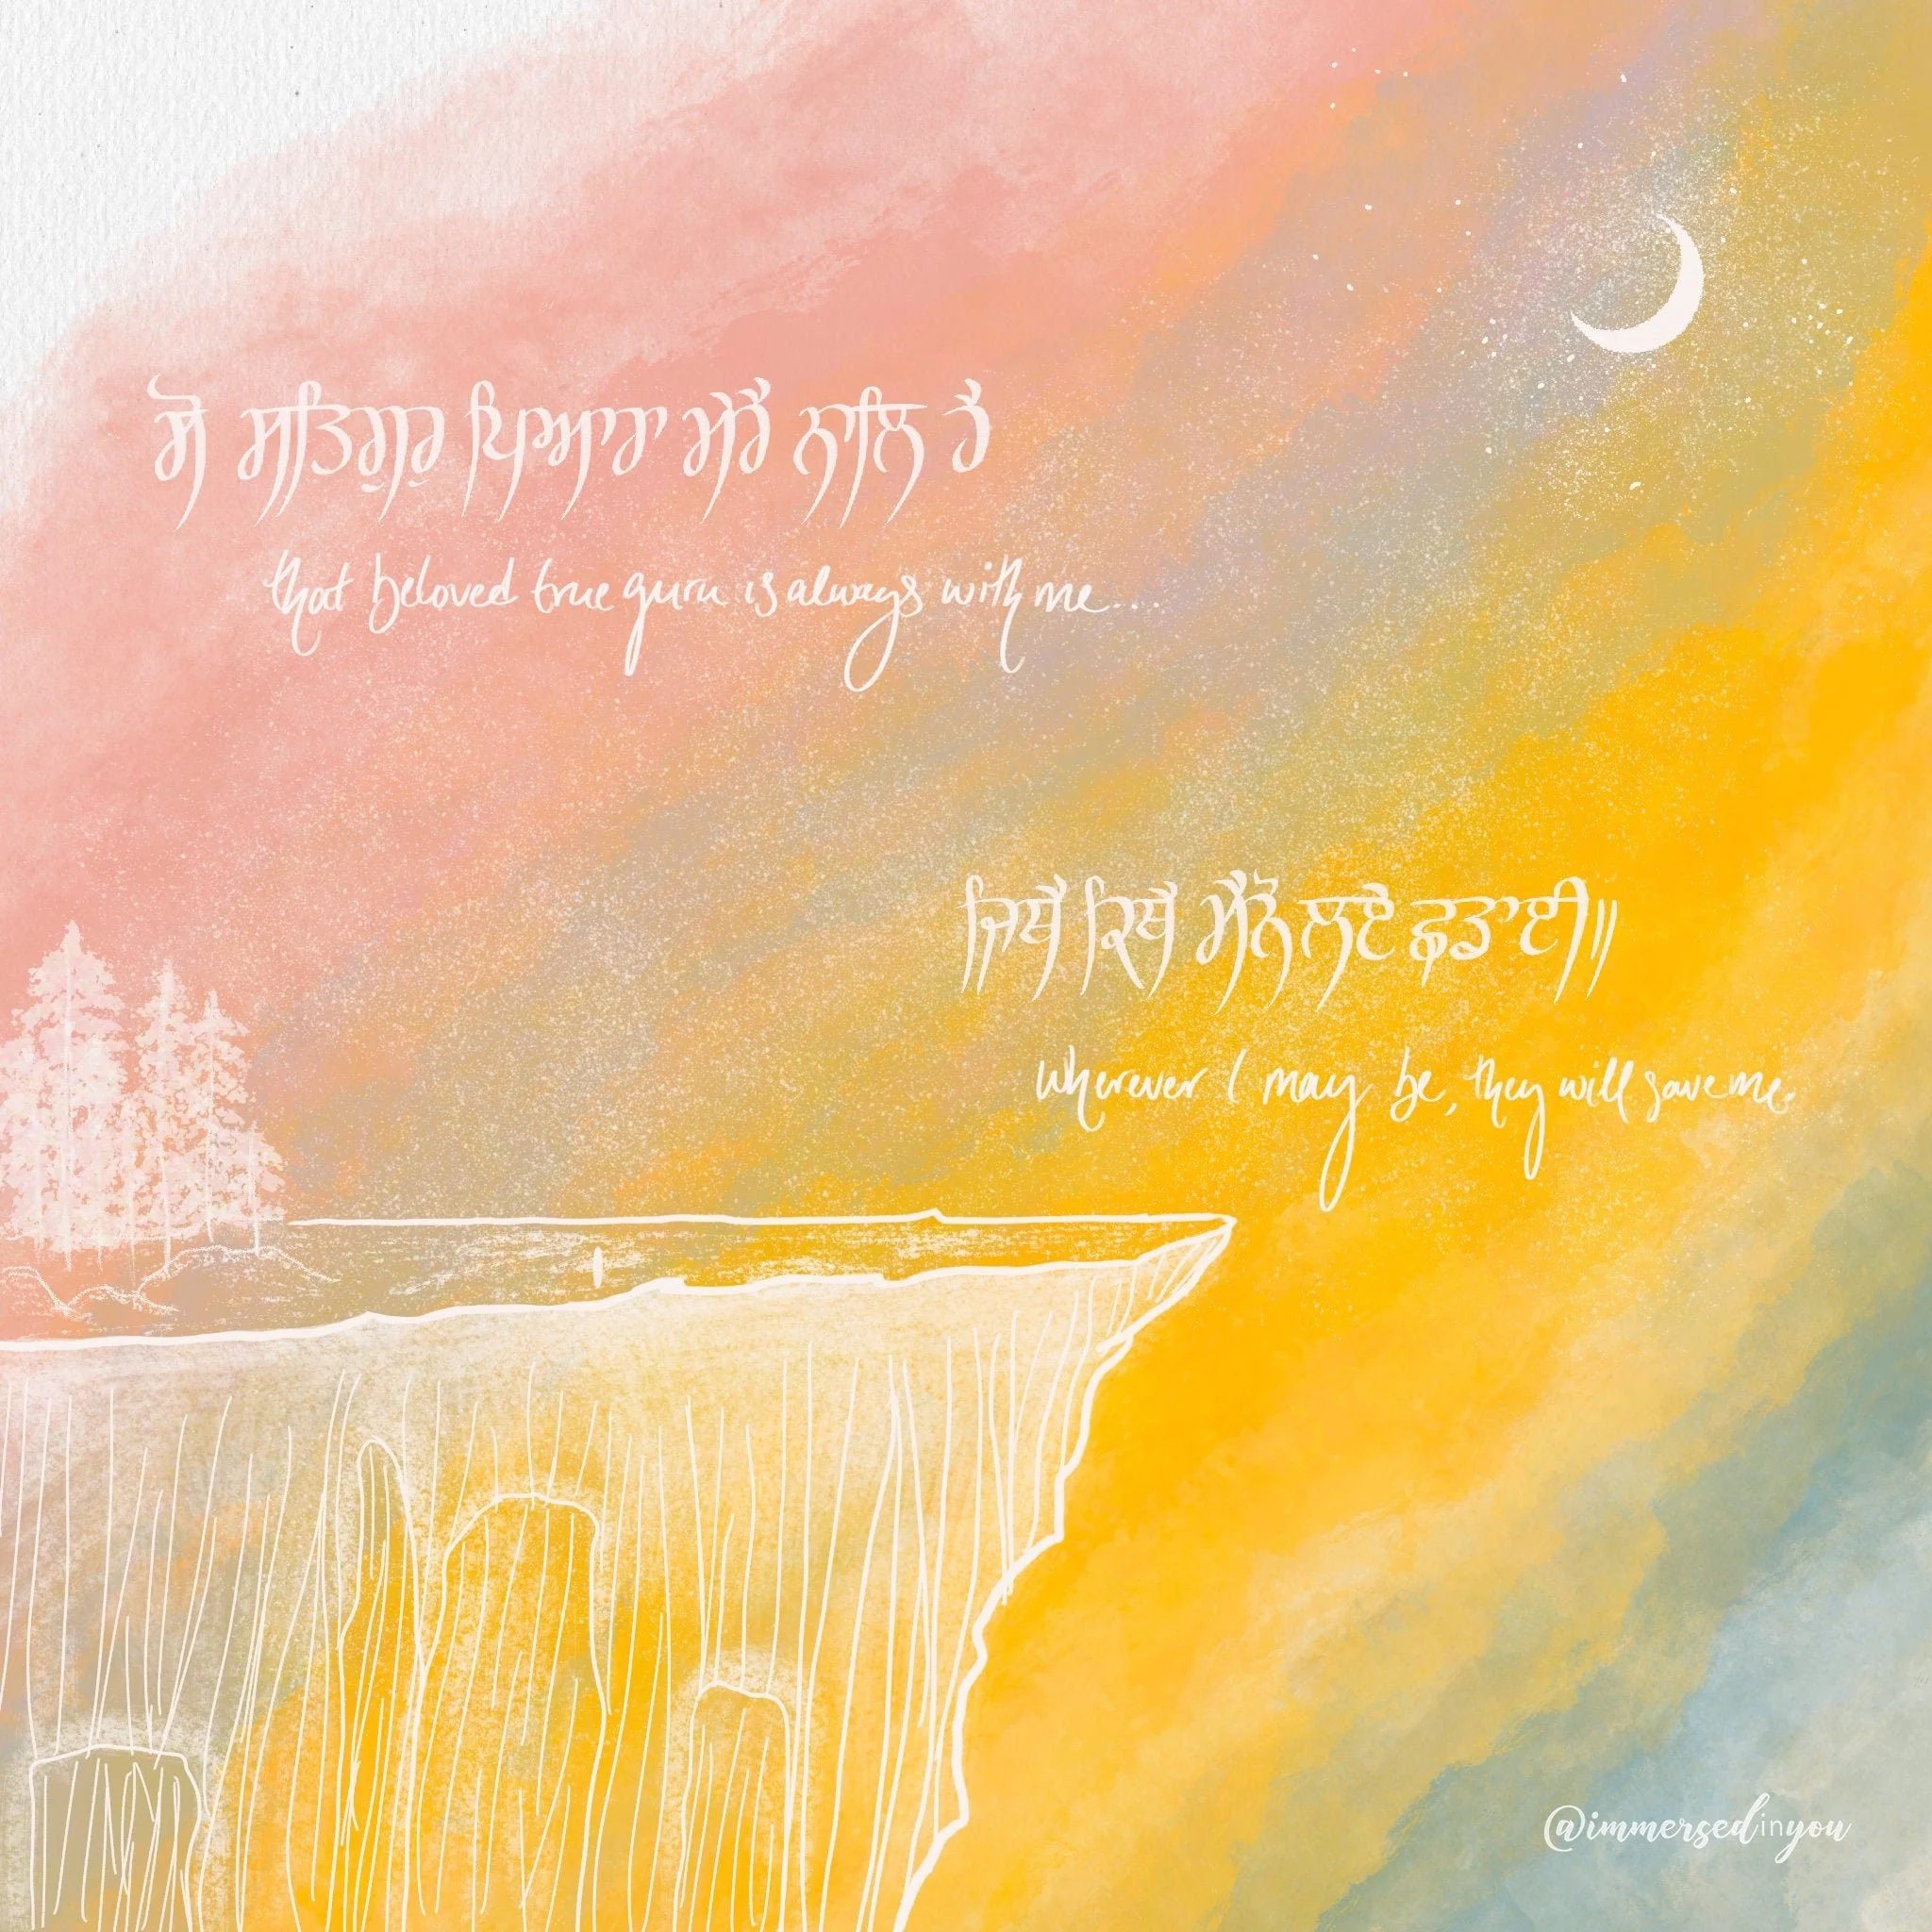 ਸੋ ਸਤਿਗੁਰੁ ਪਿਆਰਾ ਮੇਰੈ ਨਾਲਿ ਹੈ
that beloved true guru is always with me...
ਜਿਥੈ ਕਿਥੈ ਮੈਨੋ ਲਏ ਛਡਾਈ॥
wherever I may be, they will save me.
@immersedinyou